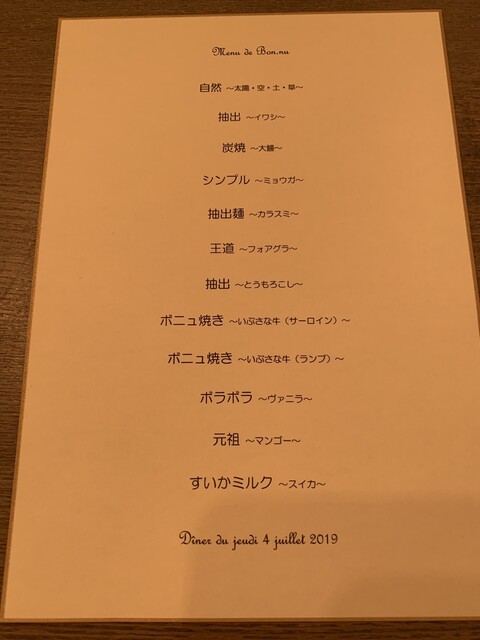 Menu de Bon.nu
自然 ～太陽・空・土・草～
抽出 ～イワシ～
炭焼 ～大鰻～
シンプル ～ミョウガ～
抽出麺 ～カラスミ～
王道 ～フォアグラ～
抽出 ～とうもろこし～
ボニュ焼き ～いぶさな牛（サーロイン）～
ボニュ焼き ～いぶさな牛（ランプ）～
ボラボラ ～ヴァニラ～
元祖 ～マンゴー～
すいかミルク ～スイカ～
Dîner du jeudi 4 juillet 2019